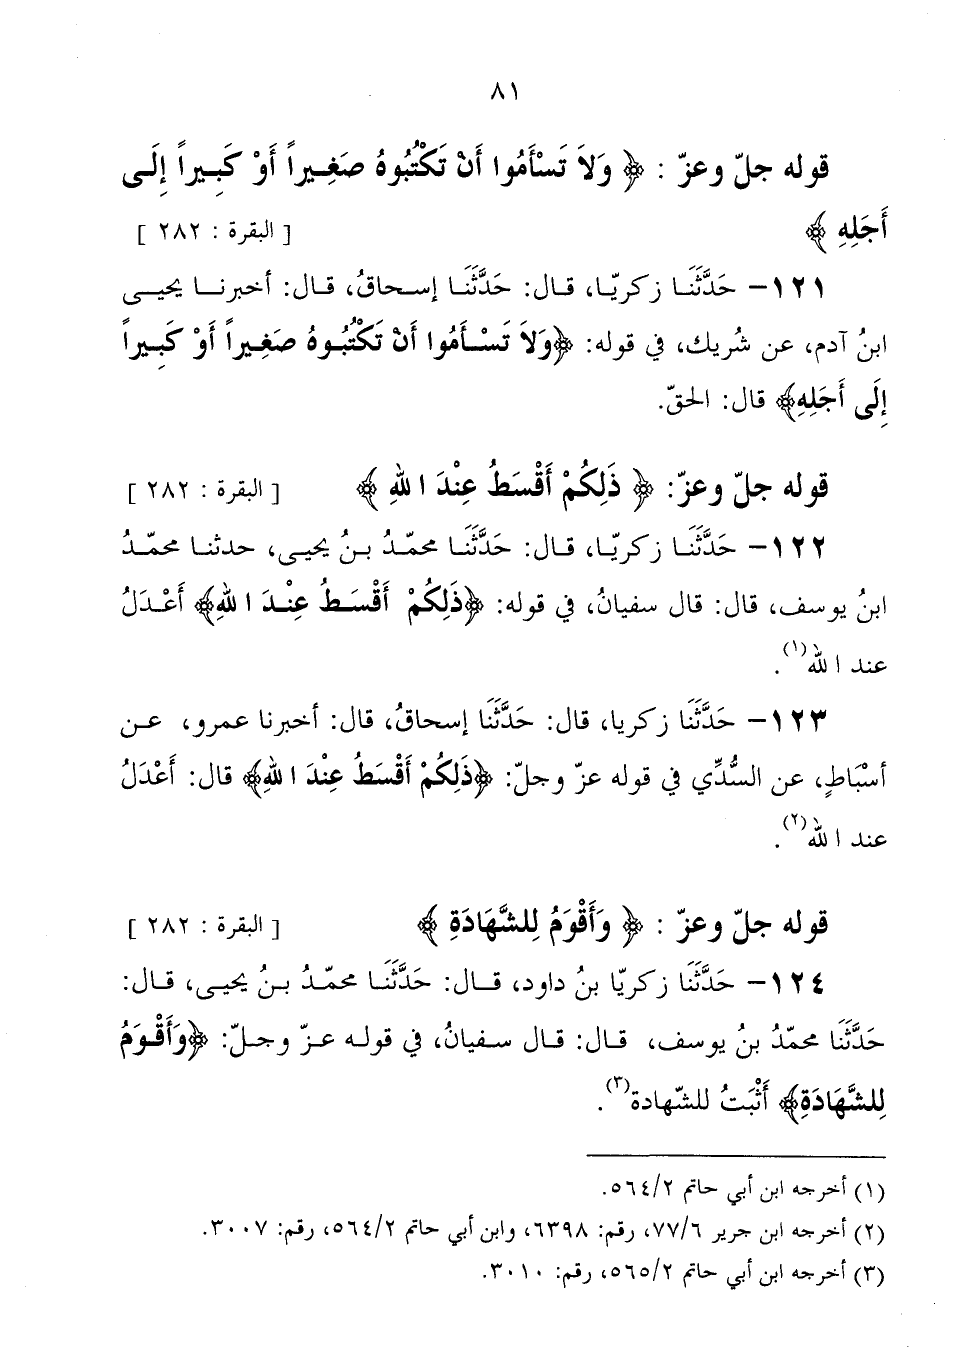 ٨١
قوله جلّ وعزّ : ﴿ وَلاَ تَسْأَمُوا أَنْ تَكْتُبُوهُ صَغِيراً أَوْ كَبِيراً إِلَى
أَجَلِهِ ﴾ [ البقرة : ٢٨٢ ]
١٢١- حَدَّثَنَا زكريّا، قال: حَدَّثَنَا إسحاقُ، قال: أخبرنا يحيى
ابنُ آدم، عن شُريك، في قوله: ﴿وَلاَ تَسْأَمُوا أَنْ تَكْتُبُوهُ صَغِيراً أَوْ كَبِيراً
إِلَى أَجَلِهِ﴾ قال: الحقّ.
قوله جلّ وعزّ: ﴿ ذَلِكُمْ أَقْسَطُ عِنْدَ اللهِ ﴾ [ البقرة : ٢٨٢ ]
١٢٢- حَدَّثَنَا زكريّا، قال: حَدَّثَنَا محمّدُ بنُ يحيى، حدثنا محمّدُ
ابنُ يوسف، قال: قال سفيانُ، في قوله: ﴿ذَلِكُمْ أَقْسَطُ عِنْدَ اللهِ﴾ أَعْدَلُ
عند الله(١).
١٢٣- حَدَّثَنَا زكريا، قال: حَدَّثَنَا إسحاقُ، قال: أخبرنا عمرو، عن
أسْبَاطٍ، عن السُّدِّي في قوله عزّ وجلّ: ﴿ذَلِكُمْ أَقْسَطُ عِنْدَ اللهِ﴾ قال: أَعْدَلُ
عند الله(٢).
قوله جلّ وعزّ : ﴿ وَأَقْوَمُ لِلشَّهَادَةِ ﴾ [ البقرة : ٢٨٢ ]
١٢٤- حَدَّثَنَا زكريّا بنُ داود، قال: حَدَّثَنَا محمّدُ بنُ يحيى، قال:
حَدَّثَنَا محمّدُ بنُ يوسف، قال: قال سفيانُ، في قوله عزّ وجلّ: ﴿وَأَقْوَمُ
لِلشَّهَادَةِ﴾ أَثْبَتُ للشّهادة(٣).
(١) أخرجه ابن أبي حاتم ٥٦٤/٢.
(٢) أخرجه ابن جرير ٧٧/٦، رقم: ٦٣٩٨، وابن أبي حاتم ٥٦٤/٢، رقم: ٣٠٠٧.
(٣) أخرجه ابن أبي حاتم ٥٦٥/٢، رقم: ٣٠١٠.